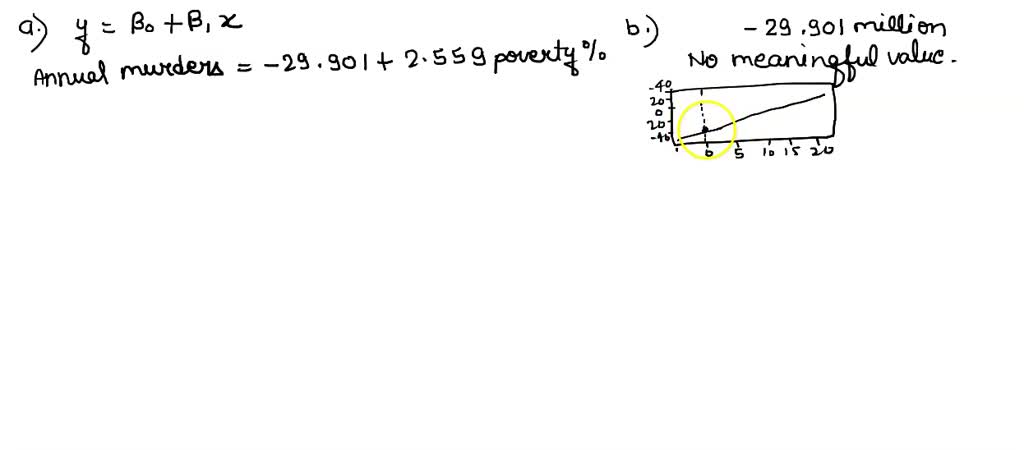 a.) y = β₀ + β₁ x
Annual murders = -29.901 + 2.559 poverty%
b.) -29.901 million
No meaningful value.
-40
20
0
20
-40
0 5 10 15 20